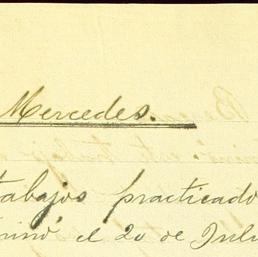 Mercedes.
tabajos practicado
minó el 20 de Juli